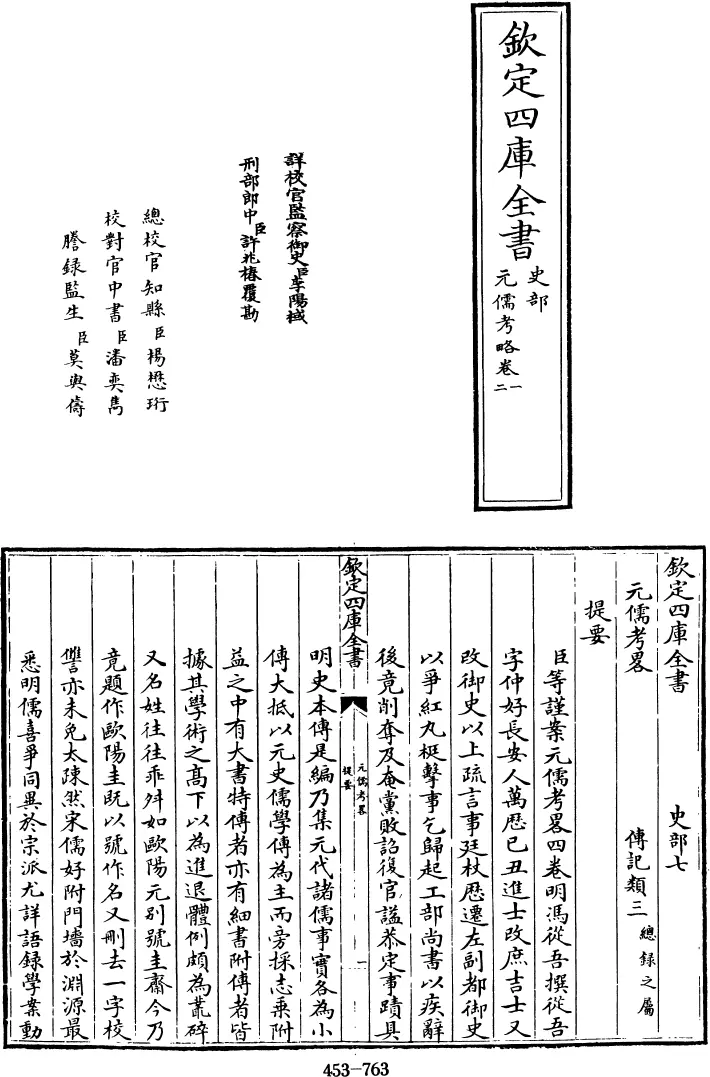 欽定四庫全書
史部
元儒考略卷一
二
詳校官監察御史臣李陽棫
刑部郎中臣許兆椿覆勘
總校官知縣臣楊懋珩
校對官中書臣潘奕雋
謄錄監生臣莫與儔
欽定四庫全書　史部七
元儒考畧　傳記類三總錄之屬
提要
臣等謹案元儒考畧四卷明馮從吾撰從吾
字仲好長安人萬歷己丑進士改庶吉士又
改御史以上疏言事廷杖歷遷左副都御史
以爭紅丸梃擊事乞歸起工部尚書以疾辭
後竟削奪及奄黨敗詔復官諡恭定事蹟具
欽定四庫全書
元儒考畧
提要
一
明史本傳是編乃集元代諸儒事實各為小
傳大抵以元史儒學傳為主而旁採志乘附
益之中有大書特傳者亦有細書附傳者皆
據其學術之高下以為進退體例頗為叢碎
又名姓往往乖舛如歐陽元別號圭齋今乃
竟題作歐陽圭既以號作名又刪去一字校
讐亦未免太疎然宋儒好附門墻於淵源最
悉明儒喜爭同異於宗派尤詳語錄學案動
453-763